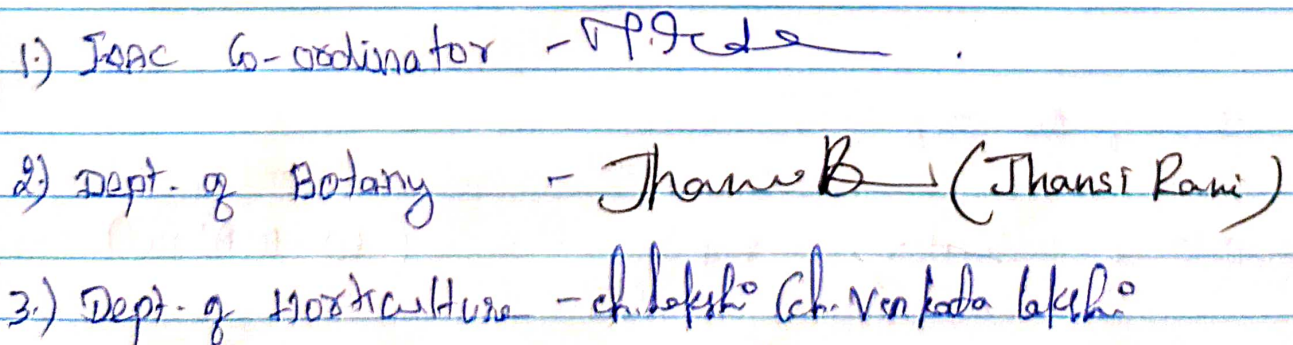 1.) IQAC Co-ordinator -
2) Dept. of Botany - (Jhansi Rani)
3.) Dept. of Horticulture - ch. Lakshi (ch. Venkata Lakshi